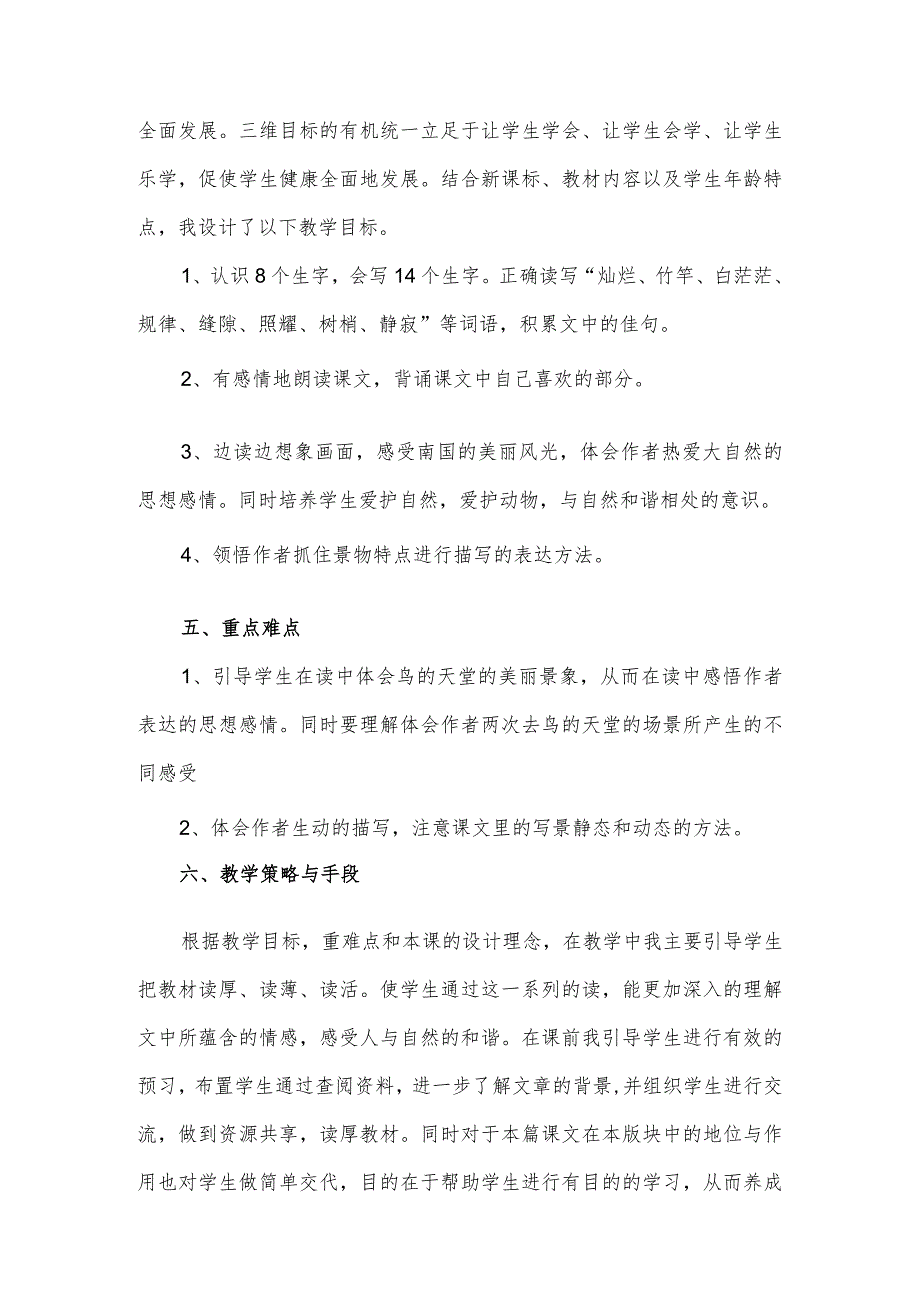 全面发展。三维目标的有机统一立足于让学生学会、让学生会学、让学生
乐学，促使学生健康全面地发展。结合新课标、教材内容以及学生年龄特
点，我设计了以下教学目标。
1、认识8个生字，会写14个生字。正确读写“灿烂、竹竿、白茫茫、
规律、缝隙、照耀、树梢、静寂”等词语，积累文中的佳句。
2、有感情地朗读课文，背诵课文中自己喜欢的部分。
3、边读边想象画面，感受南国的美丽风光，体会作者热爱大自然的
思想感情。同时培养学生爱护自然，爱护动物，与自然和谐相处的意识。
4、领悟作者抓住景物特点进行描写的表达方法。
五、重点难点
1、引导学生在读中体会鸟的天堂的美丽景象，从而在读中感悟作者
表达的思想感情。同时要理解体会作者两次去鸟的天堂的场景所产生的不
同感受
2、体会作者生动的描写，注意课文里的写景静态和动态的方法。
六、教学策略与手段
根据教学目标，重难点和本课的设计理念，在教学中我主要引导学生
把教材读厚、读薄、读活。使学生通过这一系列的读，能更加深入的理解
文中所蕴含的情感，感受人与自然的和谐。在课前我引导学生进行有效的
预习，布置学生通过查阅资料，进一步了解文章的背景,并组织学生进行交
流，做到资源共享，读厚教材。同时对于本篇课文在本版块中的地位与作
用也对学生做简单交代，目的在于帮助学生进行有目的的学习，从而养成